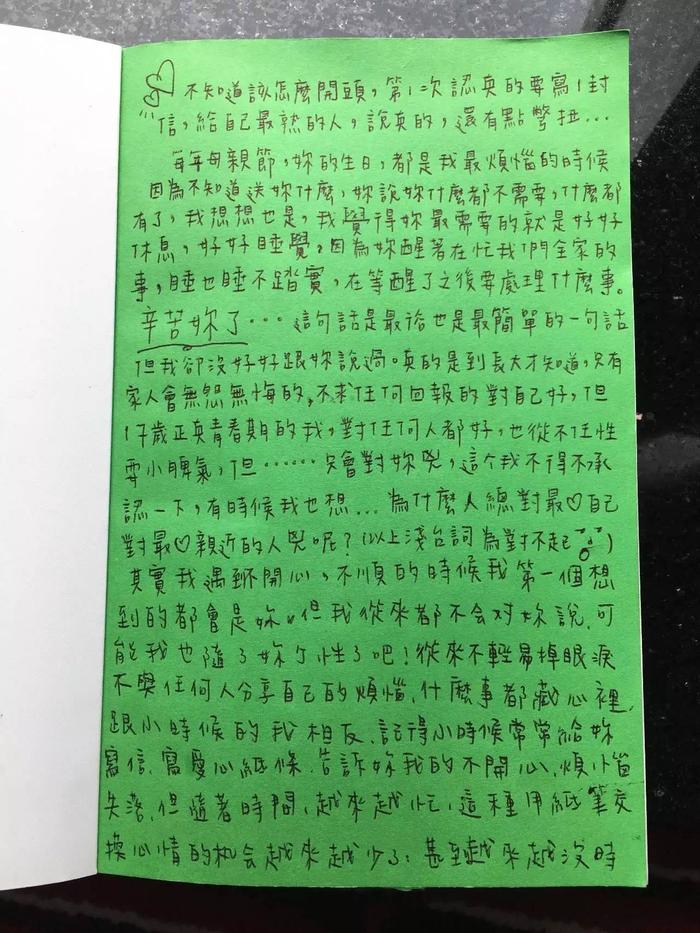 不知道該怎麼開頭，第1次認真的要寫1封
信，給自己最熟的人，說真的，還有點彆扭...
每年母親節，妳的生日，都是我最煩惱的時候
因為不知道送妳什麼，妳說妳什麼都不需要，什麼都
有了，我想想也是，我覺得妳最需要的就是好好
休息，好好睡覺，因為妳醒著在忙我們全家的
事，睡也睡不踏實，在等醒了之後要處理什麼事。
辛苦妳了... 這句話是最俗也是最簡單的一句話
但我卻沒好好跟妳說過。真的是到長大才知道，只有
家人會無怨無悔的，不求任何回報的對自己好，但
17歲正與青春期的我，對任何人都好，也從不任性
耍小脾氣，但……只會對妳兇，這个我不得不承
認一下，有時候我也想...為什麼人總對最♡自己
對最♡親近的人兇呢？(以上淺台詞為對不起)
其實我遇到不開心，不順的時候我第一個想
到的都會是妳。但我從來都不会对妳說，可
能我也隨了妳个性了吧！從來不輕易掉眼淚
不與任何人分享自己的煩惱，什麼事都藏心裡，
跟小時候的我相反，記得小時候常常給妳
寫信、寫愛心紙條、告訴妳我的不開心、煩惱
失落，但隨著時間，越來越忙，這種用紙筆交
換心情的机会越來越少了；甚至越來越沒時